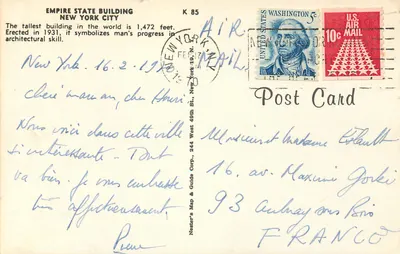 EMPIRE STATE BUILDING
NEW YORK CITY
The tallest building in the world is 1,472 feet.
Erected in 1931, it symbolizes man's progress in
architectural skill.
K 85
AIR
MAIL
NEW YORK, N.Y.
WASHINGTON 5c
U.S.
AIR MAIL
10c
Post Card
New York. 16.2.
Chère maman, cher Henri
Nous voici dans cette ville
si intéressante. Tout
va bien. Je vous embrasse
très affectueusement,
Pierre
Nester's Map & Guide Corp., 244 West 49th St., New York 19, N.Y.
Monsieur et Madame
16. av. Maxime Gorki
93 Aulnay sous Bois
FRANCE